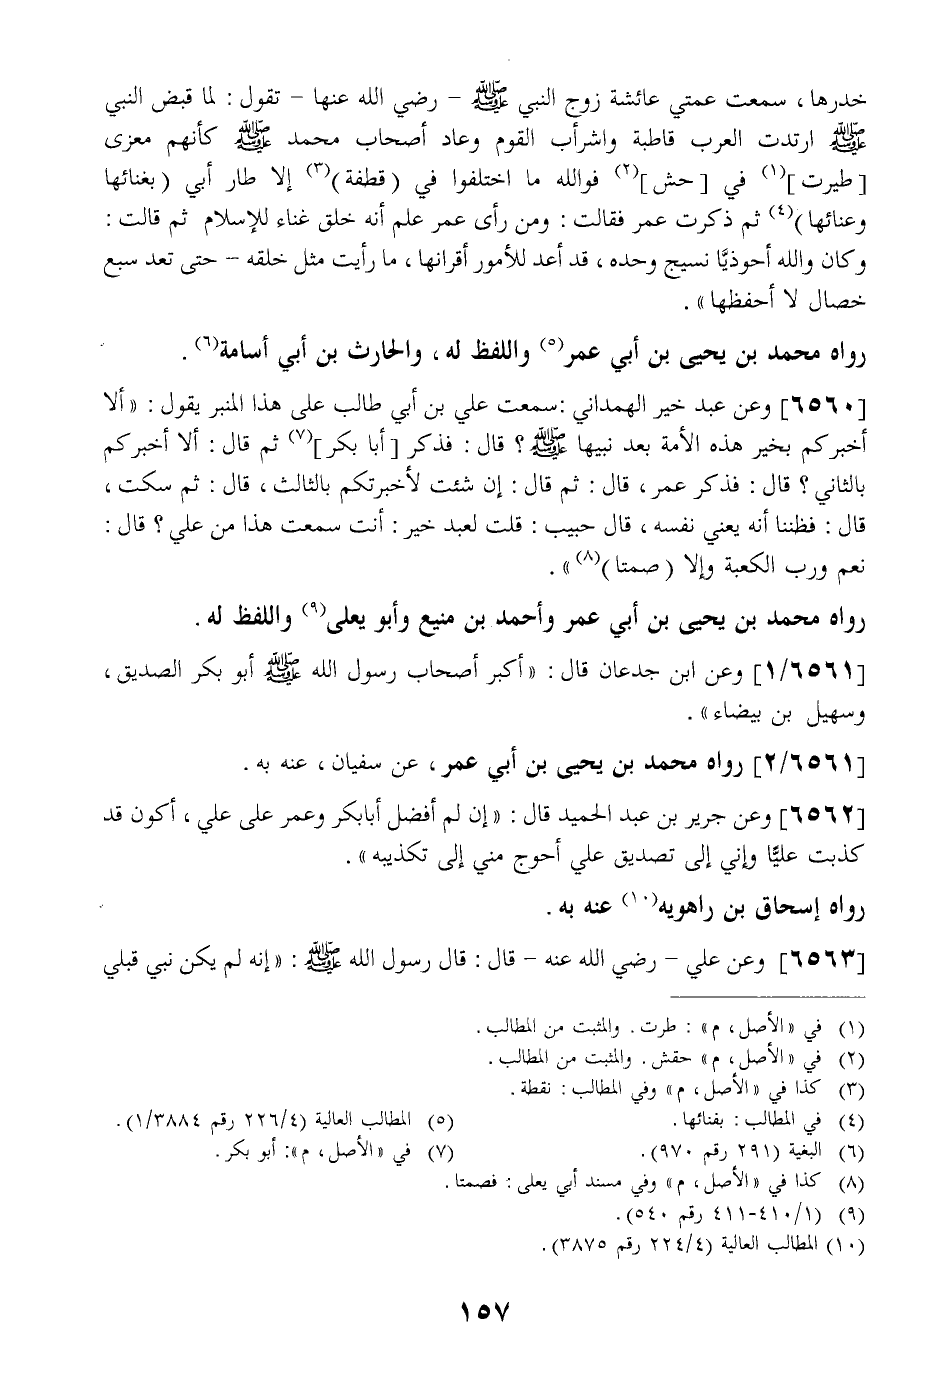 خدرها، سمعت عمتي عائشة زوج النبي ﷺ – رضي الله عنها – تقول: لما قبض النبي
ﷺ ارتدت العرب قاطبة واشرأب القوم وعاد أصحاب محمد ﷺ كأنهم معزى
[طيرت](١) في [حش](٢) فوالله ما اختلفوا في (قطفة)(٣) إلا طار أبي (بغنائها
وعنائها)(٤) ثم ذكرت عمر فقالت: ومن رأى عمر علم أنه خلق غناء للإسلام ثم قالت:
وكان والله أحوذيًّا نسيج وحده، قد أعد للأمور أقرانها، ما رأيت مثل خلقه – حتى تعد سبع
خصال لا أحفظها».
رواه محمد بن يحيى بن أبي عمر(٥) واللفظ له، والحارث بن أبي أسامة(٦).
[٦٥٦٠] وعن عبد خير الهمداني: سمعت علي بن أبي طالب على هذا المنبر يقول: «ألا
أخبركم بخير هذه الأمة بعد نبيها ﷺ؟ قال: فذكر [أبا بكر](٧) ثم قال: ألا أخبركم
بالثاني؟ قال: فذكر عمر، قال: ثم قال: إن شئت لأخبرتكم بالثالث، قال: ثم سكت،
قال: فظننا أنه يعني نفسه، قال حبيب: قلت لعبد خير: أنت سمعت هذا من علي؟ قال:
نعم ورب الكعبة وإلا (صمتا)(٨)».
رواه محمد بن يحيى بن أبي عمر وأحمد بن منيع وأبو يعلى(٩) واللفظ له.
[١/٦٥٦١] وعن ابن جدعان قال: «أكبر أصحاب رسول الله ﷺ أبو بكر الصديق،
وسهيل بن بيضاء».
[٢/٦٥٦١] رواه محمد بن يحيى بن أبي عمر، عن سفيان، عنه به.
[٦٥٦٢] وعن جرير بن عبد الحميد قال: «إن لم أفضل أبابكر وعمر على علي، أكون قد
كذبت عليًّا وإني إلى تصديق علي أحوج مني إلى تكذيبه».
رواه إسحاق بن راهويه(١٠) عنه به.
[٦٥٦٣] وعن علي – رضي الله عنه – قال: قال رسول الله ﷺ: «إنه لم يكن نبي قبلي
(١) في «الأصل، م»: طرت. والمثبت من المطالب.
(٢) في «الأصل، م» حقش. والمثبت من المطالب.
(٣) كذا في «الأصل، م» وفي المطالب: نقطة.
(٤) في المطالب: بفنائها. (٥) المطالب العالية (٢٢٦/٤ رقم ١/٣٨٨٤).
(٦) البغية (٢٩١ رقم ٩٧٠). (٧) في «الأصل، م»: أبو بكر.
(٨) كذا في «الأصل، م» وفي مسند أبي يعلى: فصمتا.
(٩) (٤١٠/١-٤١١ رقم ٥٤٠).
(١٠) المطالب العالية (٢٢٤/٤ رقم ٣٨٧٥).
١٥٧